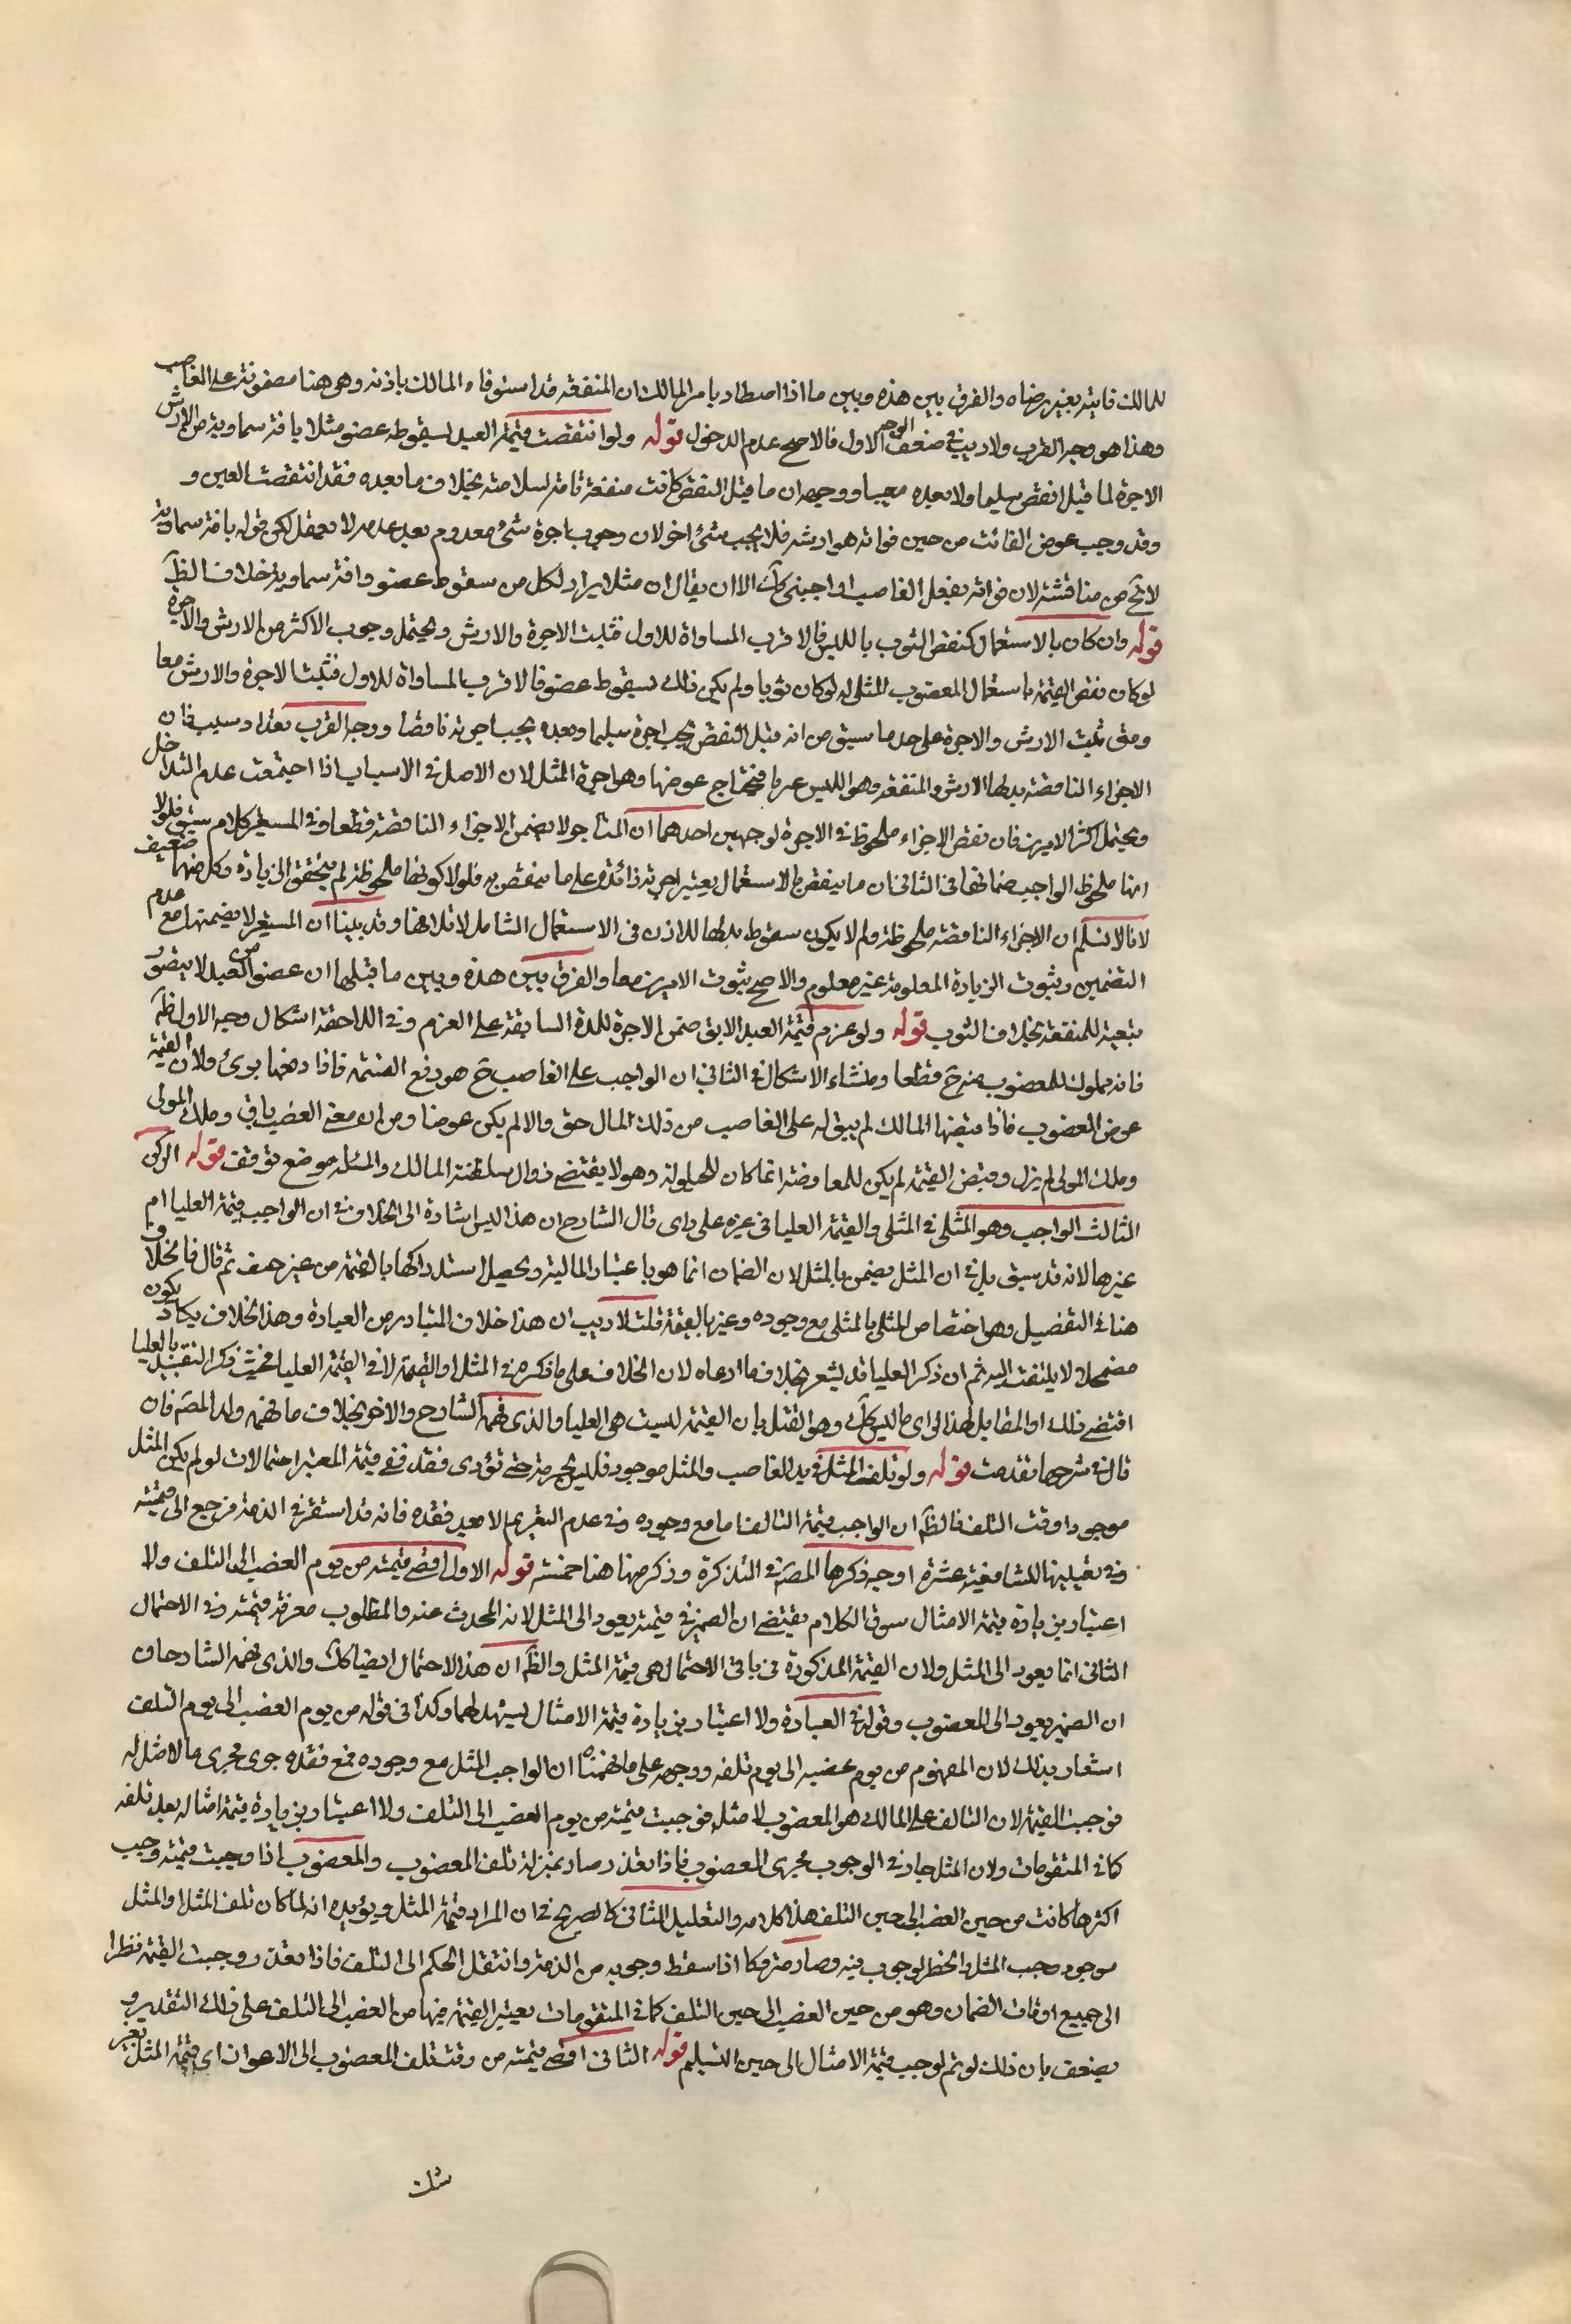 للمالك فايته بغير رضاه والفرق بين هذه وبين ما اذا اصطاد بامر المالك ان المنفعة قد استوفاء المالك باذنه وهي هنا مضمونة على الغاصب
وهذا هو وجه القرب ولا ريب في ضعف الوجه الاول فالاصح عدم الدخول قوله ولو انتقصت قيمة العبد لسقوط عضو مثلا بافة سماوية ضمن الارش
الاجرة لما قبل النقص سليما ولا بعده معيبا ووجهه ان ما قبل النقص كانت منفعة تامة لسلامته بخلاف ما بعده فقد انتقصت العين و
وقد وجب عوض الفائت من حين فواته هو ارشه فلا يجب شئ اخر لان وجوب اجرة شئ معدوم بعد عدمه لا يعقل لكن قوله بافة سماوية
لا يخ من مناقشة لان فواته بفعل الغاصب او اجنبي كك الا ان يقال ان مثل ايراد لكل من سقوط عضو وافة سماوية خلاف الظ
قوله وان كان بالاستعمال كنقص الثوب باللبس فالاقرب المساواة للاول فتثبت الاجرة والارش ويحتمل وجوب الاكثر من الارش والاجرة
لو كان نقص القيمة باستعمال المغصوب المثلي له لو كان ثوبا ولم يكن ذلك لسقوط عضو فالاقرب المساواة للاول فتثبت الاجرة والارش معا
ومتى ثبت الارش والاجرة على حد ما سبق من انه قبل النقص يجب اجرة سليما وبعده يجب اجرته ناقصا ووجه القرب تعدد سبب فان
الاجزاء الناقصة بدلها الارش والمنفعة وهو اللبس عربا فيحتاج عوضها وهو اجرة المثل لان الاصل في الاسباب اذا اجتمعت عدم التداخل
ويحتمل اكثر الامرين فان نقص الاجزاء ملحوظ في الاجرة لوجهين احدهما ان المستاجر لا يضمن الاجزاء الناقصة قطعا وفي المستعير كلام سبق فلولا
انها ملحوظ الواجب ضمانها في الثاني ان ما ينقص بالاستعمال يعتبر اجرته زائدة على ما ينقص به فلولا كونها ملحوظة لم يتحقق الزيادة وكل منهما ضعيف
لانا لا نسلم ان الاجزاء الناقصة ملحوظة ولم لا يكون سقوط بدلها للاذن في الاستعمال الشامل لاتلافها وقد بينا ان المستعير لا يضمنها مع عدم
التضمين وثبوت الزيادة المعلومة غير معلوم والاصح ثبوت الامرين معا والفرق بين هذه وبين ما قبلها ان عضو العبد لا يتصور
تبعيته للمنفعة بخلاف الثوب قوله ولو غرم قيمة العبد الابق ضمن الاجرة للمدة السابقة على الغرم وفي اللاحقة اشكال وجه الاول ظ
فانه مملوك للمغصوب منه ح قطعا ومنشاء الاشكال في الثاني ان الواجب على الغاصب ح هو دفع القيمة فاذا دفعها برئ ولان القيمة
عوض المغصوب فاذا قبضها المالك لم يبق له على الغاصب من ذلك المال حق والا لم يكن عوضا ومن ان معنى الغصب باق وملك المولى
وملك المولى لم يزل وقبض القيمة لم يكن للمعاوضة انما كان للحيلولة وهو لا يقتضي زوال سلطنة المالك والمسئلة موضع توقف قوله الركن
الثالث الواجب وهو المثلي في المثلي والقيمة العليا في غيره على راي قال الشارح ان هذا ليس اشارة الى الخلاف في ان الواجب قيمة العليا ام
غيرها لانه قد سبق بل في ان المثل يضمن بالمثل لان الضمان انما هو باعتبار المالية ويحصل استدراكها بالقيمة من غير حيف ثم قال فالخلاف
هنا في التفصيل وهو اختصاص المثلي بالمثلي مع وجوده وغيرها بالقيمة قلت لا ريب ان هذا خلاف المتبادر من العبارة وهذا الخلاف يكاد يكون
مضمحلا ولا يلتفت اليه ثم ان ذكر العليا قد يشعر بخلاف ما ادعاه لان الخلاف على ما ذكره في المثل او القيمة لا في القيمة العليا فحيث ذكر التقييد بالعليا
اقتضى ذلك او المقابل لهذا الراي ما ليس كك وهو القئل بان القيمة ليست هي العليا والذي فهمه الشارح والاخر بخلاف ما فهمه ولد المصنف فان
قال في شرحها تقدمت قوله ولو تلف المثلي في يد الغاصب والمثل موجود فلم يغرمه حتى تؤدى فقد ففي قيمة المعتبر احتمالات لو لم يكن المثل
موجودا وقت التلف فالظ ان الواجب قيمة التالف اما مع وجوده وفي عدم التغريم الا بعد فقده فانه قد استقر في الذمة فرجع الى قيمته
وفي تعيينها للشافعية عشرة اوجه ذكرها المصنف في التذكرة وذكر منها هنا خمسة قوله الاول اقصى قيمته من يوم الغصب الى التلف ولا
اعتبار بزيادة قيمة الامثال سوق الكلام يقتضي ان الضمير في قيمته يعود الى المثل لانه المحدث عنه والمطلوب معرفة قيمته وفي الاحتمال
الثاني انما يعود الى المثل ولان القيمة المذكورة في باقي الاحتمال هي قيمة المثل والظ ان هذا الاحتمال ايضا كك والذي فهمه الشارحان
ان الضمير يعود الى المغصوب وقوله في العبارة ولا اعتبار بزيادة قيمة الامثال يشهد لهما وكذا في قوله من يوم الغصب الى يوم التلف
اشعار بذلك لان المفهوم من يوم غصبه الى يوم تلفه ووجهه على ما فهمناه ان الواجب المثل مع وجوده فمع فقده جرى مجرى ما لا مثل له
فوجبت القيمة لان التالف على المالك هو المغصوب لا مثله فوجبت قيمته من يوم الغصب الى التلف ولا اعتبار بزيادة قيمة امثاله بعد تلفه
كما في المتقومات ولان المثل جار في الوجوب مجرى المغصوب فاذا تعذر صار بمنزلة تلف المغصوب والمغصوب اذا وجبت قيمته وجب
اكثرها كانت من حين الغصب الى حين التلف هذا كلامه والتعليل الثاني كالصريح في ان المراد قيمة المثل ويؤيده انه لما كان تلف المثل والمثل
موجود وجب المثل وانحصر الوجوب فيه وصار متروكا اذا سقط وجوبه من الذمة وانتقل الحكم الى التلف فاذا تعذر وجبت القيمة نظرا
الى جميع اوقات الضمان وهو من حين الغصب الى حين التلف كما في المتقومات يعتبر القيمة فيها من الغصب الى التلف على ذلك التقدير و
يضعف بان ذلك لو تم لوجب قيمة الامثال الى حين التسليم قوله الثاني اقصى قيمته من وقت تلف المغصوب الى الاعواز اي قيمة المثل بغير